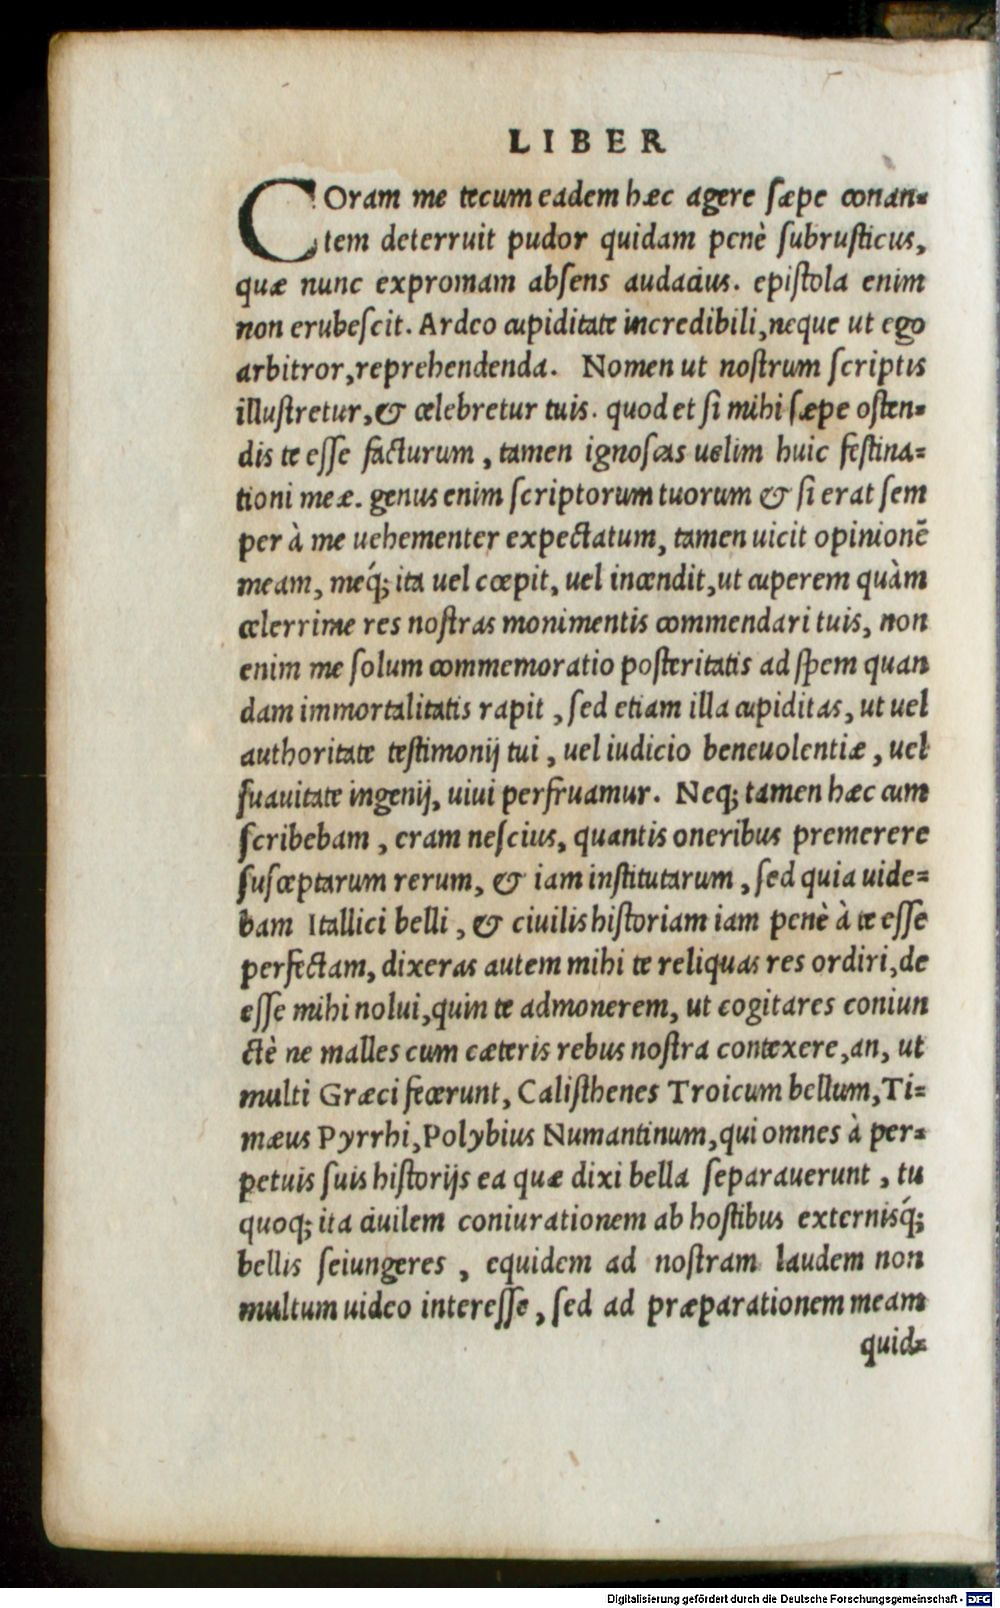 LIBER
COram me tecum eadem hæc agere sæpe conan=
tem deterruit pudor quidam penè subrusticus,
quæ nunc expromam absens audacius. epistola enim
non erubescit. Ardeo cupiditate incredibili, neque ut ego
arbitror, reprehendenda. Nomen ut nostrum scriptis
illustretur, & celebretur tuis. quod et si mihi sæpe osten=
dis te esse facturum, tamen ignoscas uelim huic festina=
tioni meæ. genus enim scriptorum tuorum & si erat sem
per à me uehementer expectatum, tamen uicit opinionē
meam, meq́; ita uel cœpit, uel incendit, ut cuperem quàm
celerrime res nostras monimentis commendari tuis, non
enim me solum commemoratio posteritatis ad spem quan
dam immortalitatis rapit, sed etiam illa cupiditas, ut uel
authoritate testimonij tui, uel iudicio beneuolentiæ, uel
suauitate ingenij, uiui perfruamur. Neq; tamen hæc cum
scribebam, eram nescius, quantis oneribus premerere
susceptarum rerum, & iam institutarum, sed quia uide=
bam Itallici belli, & ciuilis historiam iam penè à te esse
perfectam, dixeras autem mihi te reliquas res ordiri, de
esse mihi nolui, quin te admonerem, ut cogitares coniun
ctè ne malles cum cæteris rebus nostra contexere, an, ut
multi Græci fecerunt, Calisthenes Troicum bellum, Ti=
mæus Pyrrhi, Polybius Numantinum, qui omnes à per=
petuis suis historijs ea quæ dixi bella separauerunt, tu
quoq; ita ciuilem coniurationem ab hostibus externisq́;
bellis seiungeres, equidem ad nostram laudem non
multum uideo interesse, sed ad præparationem meam
quid=
Digitalisierung gefördert durch die Deutsche Forschungsgemeinschaft - DFG